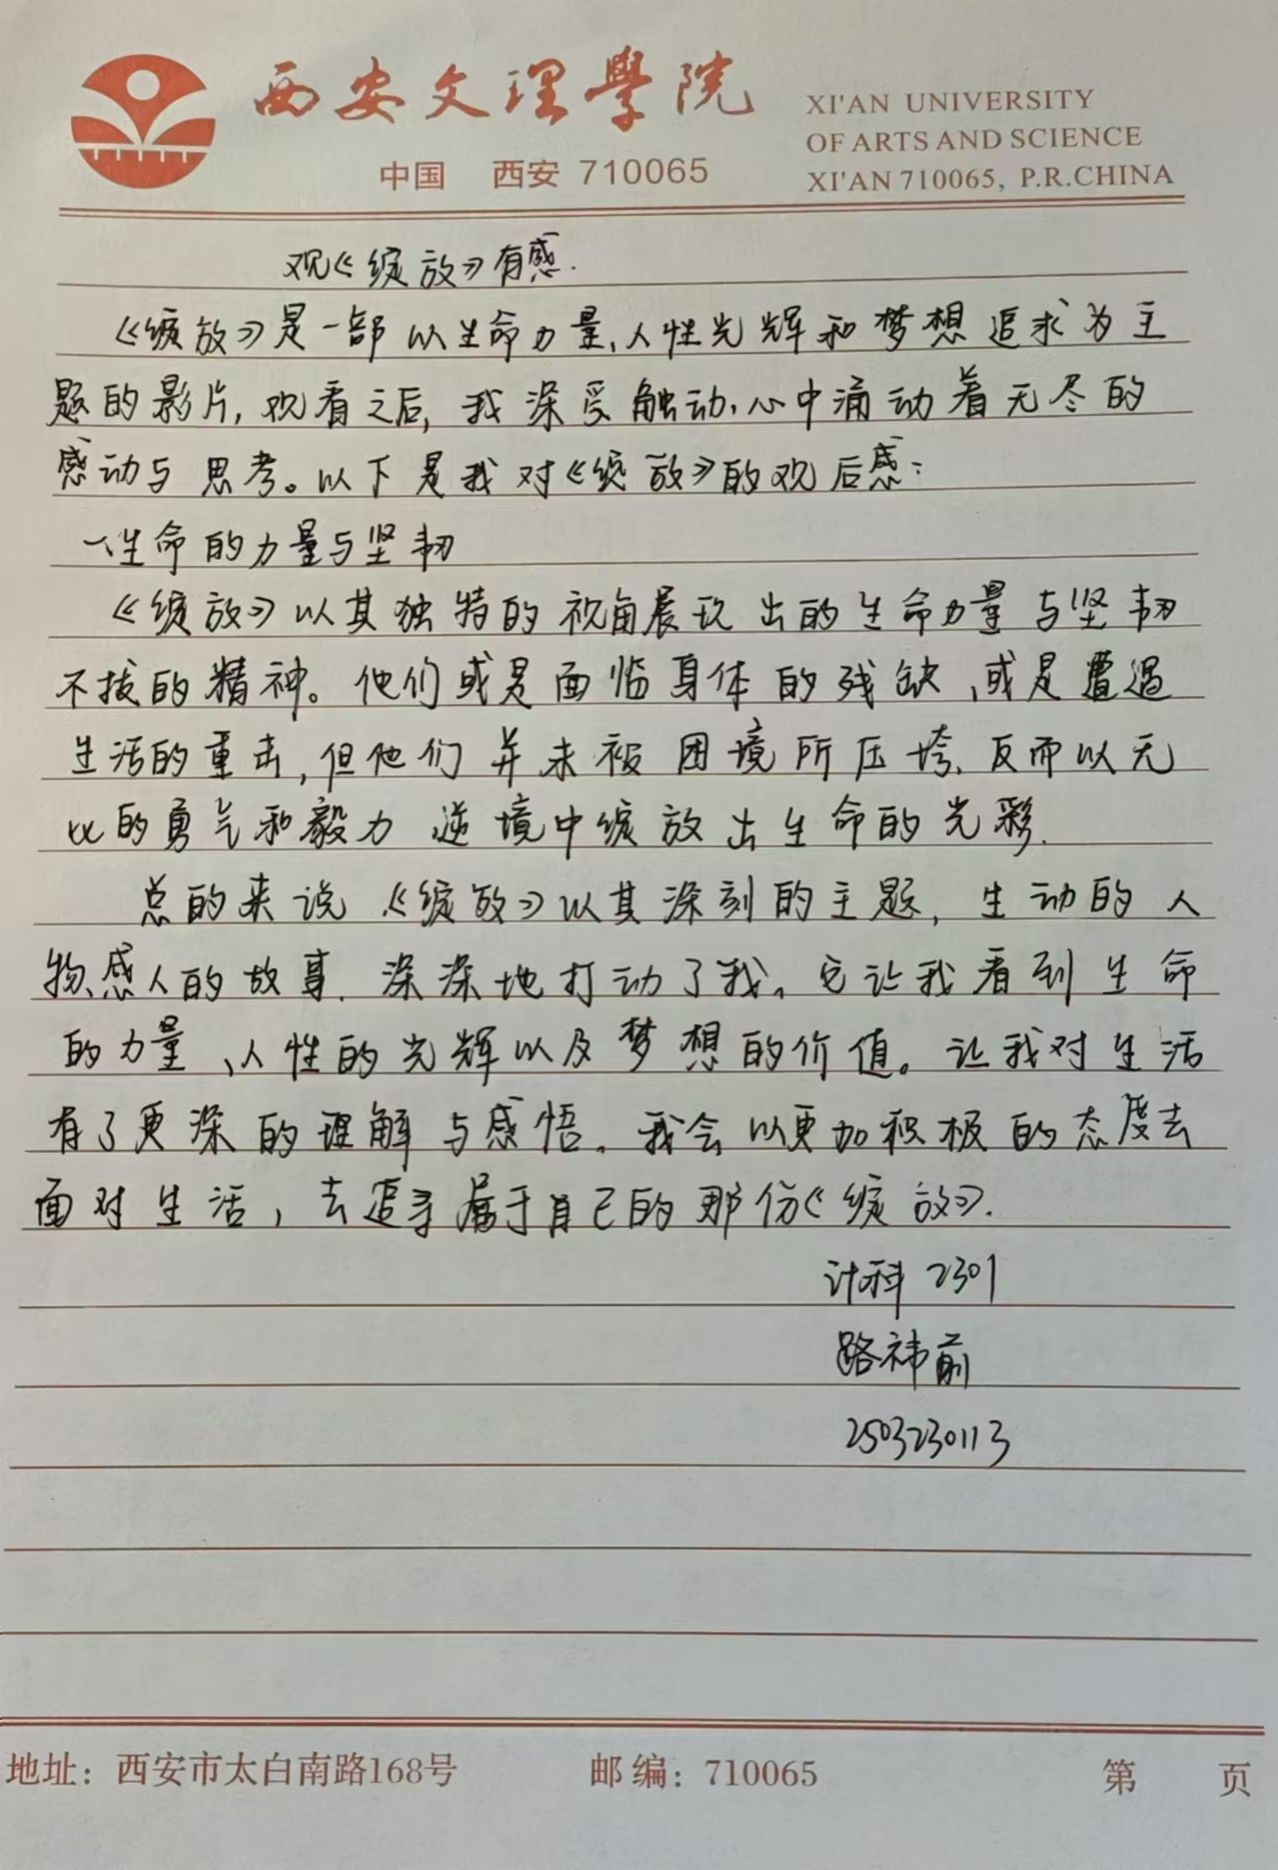 西安文理學院
中国 西安 710065
XI'AN UNIVERSITY
OF ARTS AND SCIENCE
XI'AN 710065, P.R.CHINA
观《绽放》有感.
《绽放》是一部以生命力量、人性光辉和梦想追求为主
题的影片,观看之后,我深受触动,心中涌动着无尽的
感动与思考。以下是我对《绽放》的观后感:
一、生命的力量与坚韧
《绽放》以其独特的视角展现出的生命力量与坚韧
不拔的精神。他们或是面临身体的残缺、或是遭遇
生活的重击,但他们并未被困境所压垮,反而以无
比的勇气和毅力,逆境中绽放出生命的光彩.
总的来说《绽放》以其深刻的主题,生动的人
物、感人的故事.深深地打动了我。它让我看到生命
的力量、人性的光辉以及梦想的价值。让我对生活
有了更深的理解与感悟。我会以更加积极的态度去
面对生活,去追寻属于自己的那份《绽放》.
计科2301
路祎前
2503230113
地址:西安市太白南路168号 邮编:710065 第 页